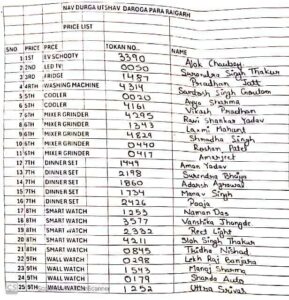 NAV DURGA UTSHAV DAROGA PARA RAIGARH
PRICE LIST
SNO PRICE PRCE TOKAN NO.. NAME
1 1ST EV SCHOOTY 3390 Alok Choubey
2 2ND LED TV 0050 Surendra Singh Thakur
3 3RD FRIDGE 1487 Pradhan Jatt
4 4RTH WASHING MACHINE 4314 Santosh Singh Goutam
5 5TH COOLER 0020 Ayya Sharma
6 5TH COOLER 4161 Vikash Pradhan
7 6TH MIXER GRINDER 4295 Ravi Shankar Yadav
8 6TH MIXER GRINDER 1343 Laxmi Mahant
9 6TH MIXER GRINDER 4829 Shradha Singh
10 6TH MIXER GRINDER 0440 Roshan Patel
11 6TH MIXER GRINDER 0417 Amarjeet
12 7TH DINNER SET 1449 Aman Yadav
13 7TH DINNER SET 2198 Surendra
14 7TH DINNER SET 1860 Adarsh Agrawal
15 7TH DINNER SET 1734 Manav Singh
16 7TH DINNER SET 2426 Pooja
17 8TH SMART WATCH 1253 Naman Das
18 8TH SMART WATCH 3577 Vanshika Jhangde
19 8TH SMART WATCH 2332 Red Light
20 8TH SMART WATCH 4211 Slok Singh Thakur
21 8TH SMART WATCH 0845 Nishad
22 9TH WALL WATCH 0298 Lekh Raj Banjara
23 9TH WALL WATCH 1543 Manoj Sharma
24 9TH WALL WATCH 0179 Sharda Auto
25 9TH WALL WATCH 1252 Uttra